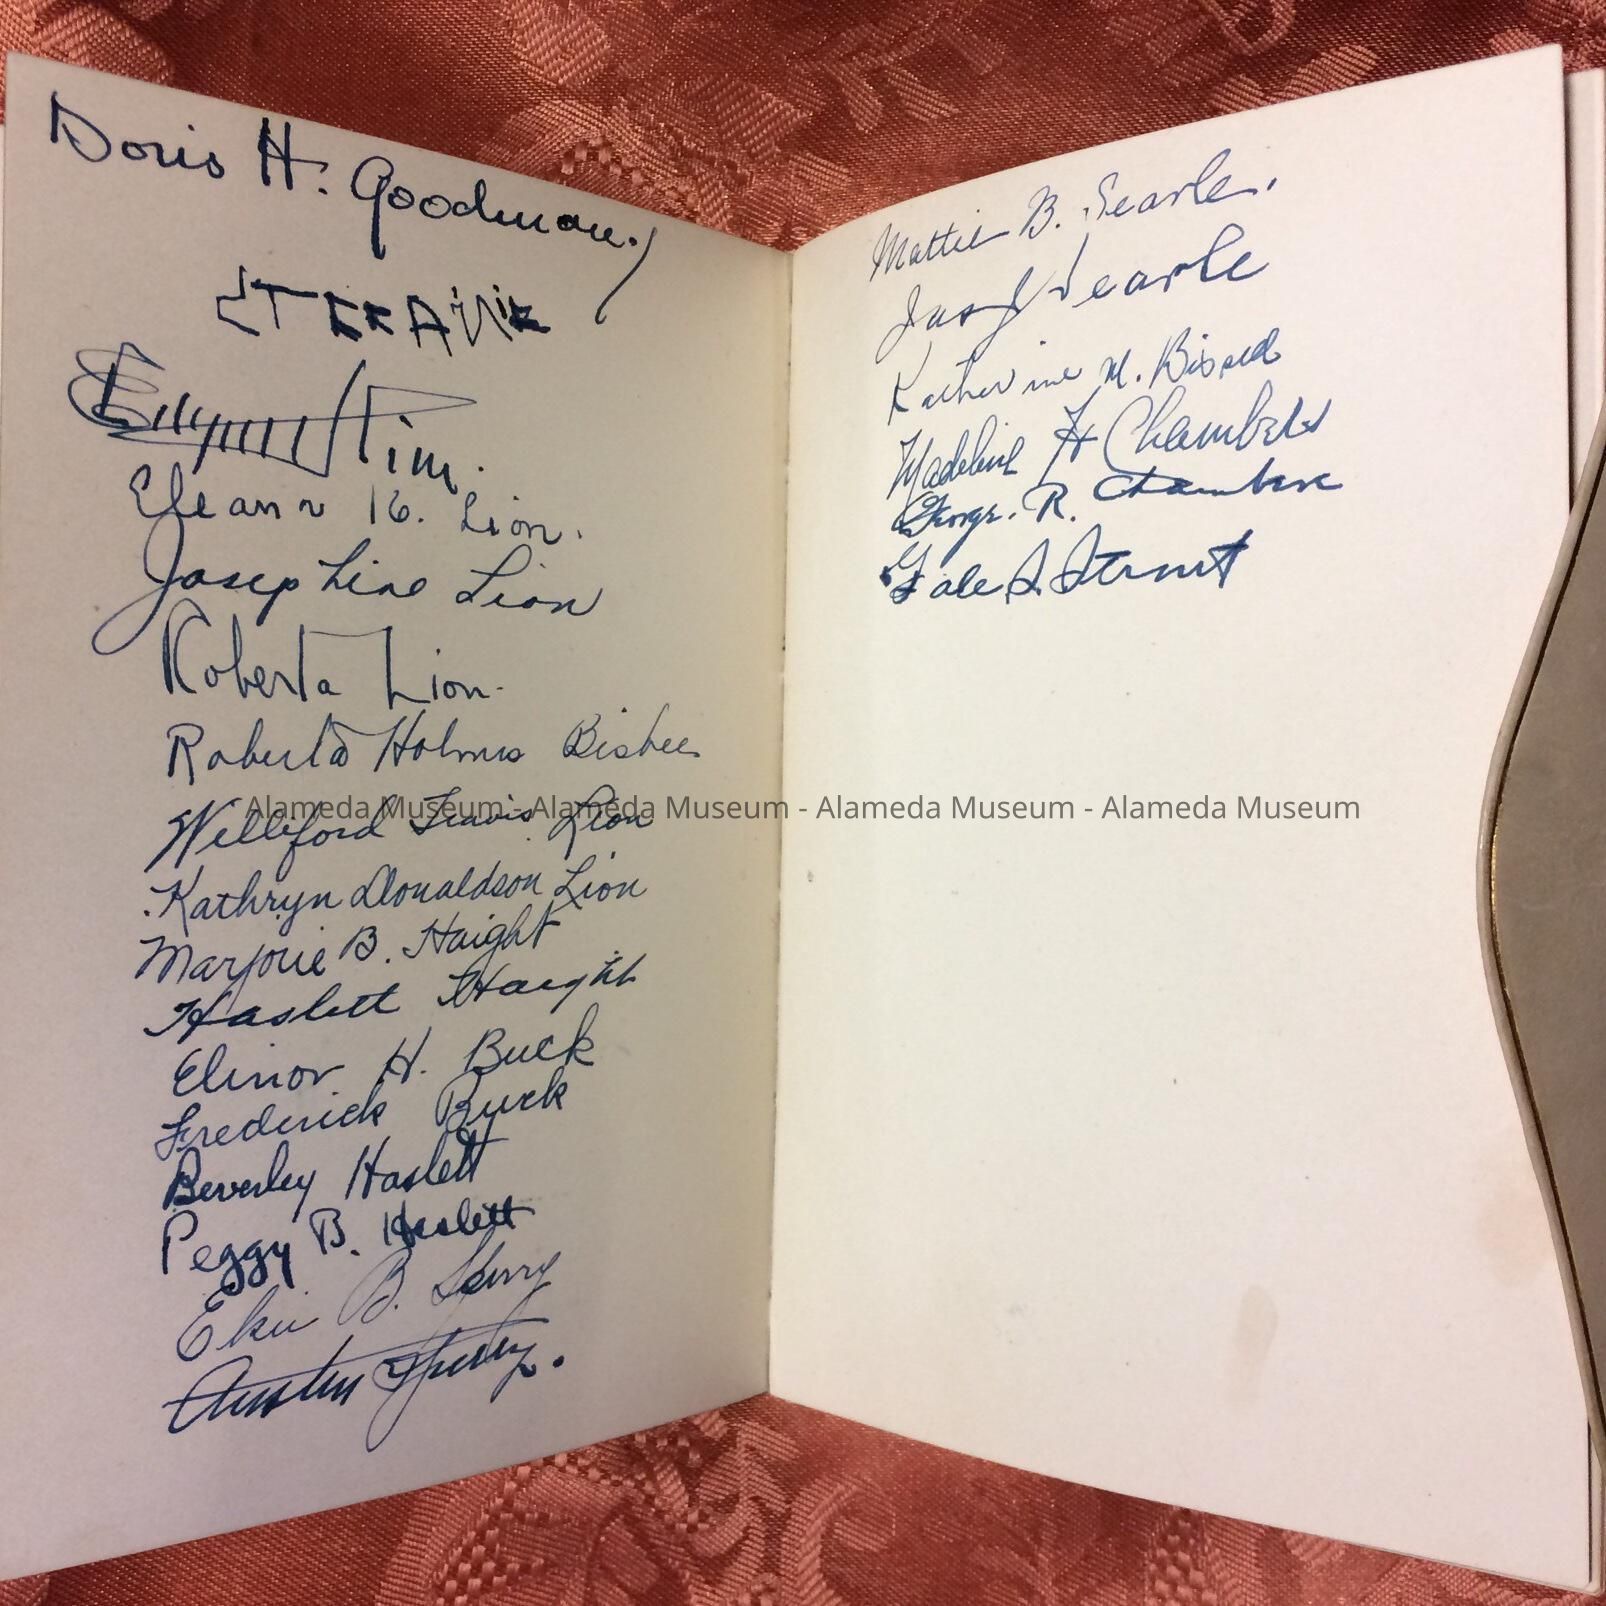 Doris H. Goodman.
Eleanor K. Lion.
Josephine Lion
Roberta Lion.
Roberta Holmes Bisbee
Williford Travis Lion
Alameda Museum - Alameda Museum - Alameda Museum - Alameda Museum
Kathryn Donaldson Lion
Marjorie B. Haight
Haslett Haight
Elinor H. Buck
Frederick Buck
Beverley Haslett
Peggy B. Haslett
B. Sperry
Austin Sperry.
Mattie B. Searle.
Searle
Katherine M.
Madeline H Chambers
George. R. Chambers